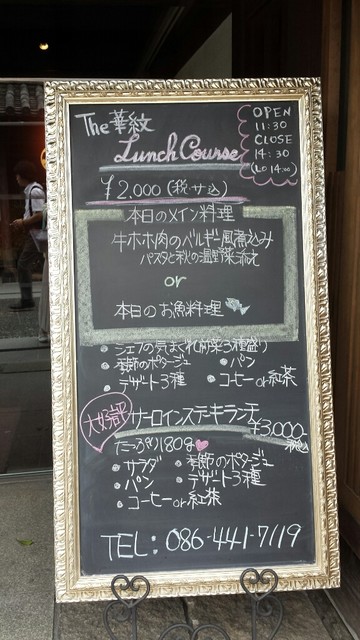 The 華紋
Lunch Course
OPEN
11:30
CLOSE
14:30
(Lo 14:00)
¥2,000 (税・サ込)
本日のメイン料理
牛ホホ肉のベルギー風煮込み
パスタと秋の温野菜添え
or
本日のお魚料理
• シェフの気まぐれ前菜3種盛り
• 季節のポタージュ • パン
• デザート3種 • コーヒー or 紅茶
大好評 サーロインステーキランチ
¥3,000 税込
たっぷり180g
• サラダ • 季節のポタージュ
• パン • デザート3種
• コーヒー or 紅茶
TEL: 086-441-7119